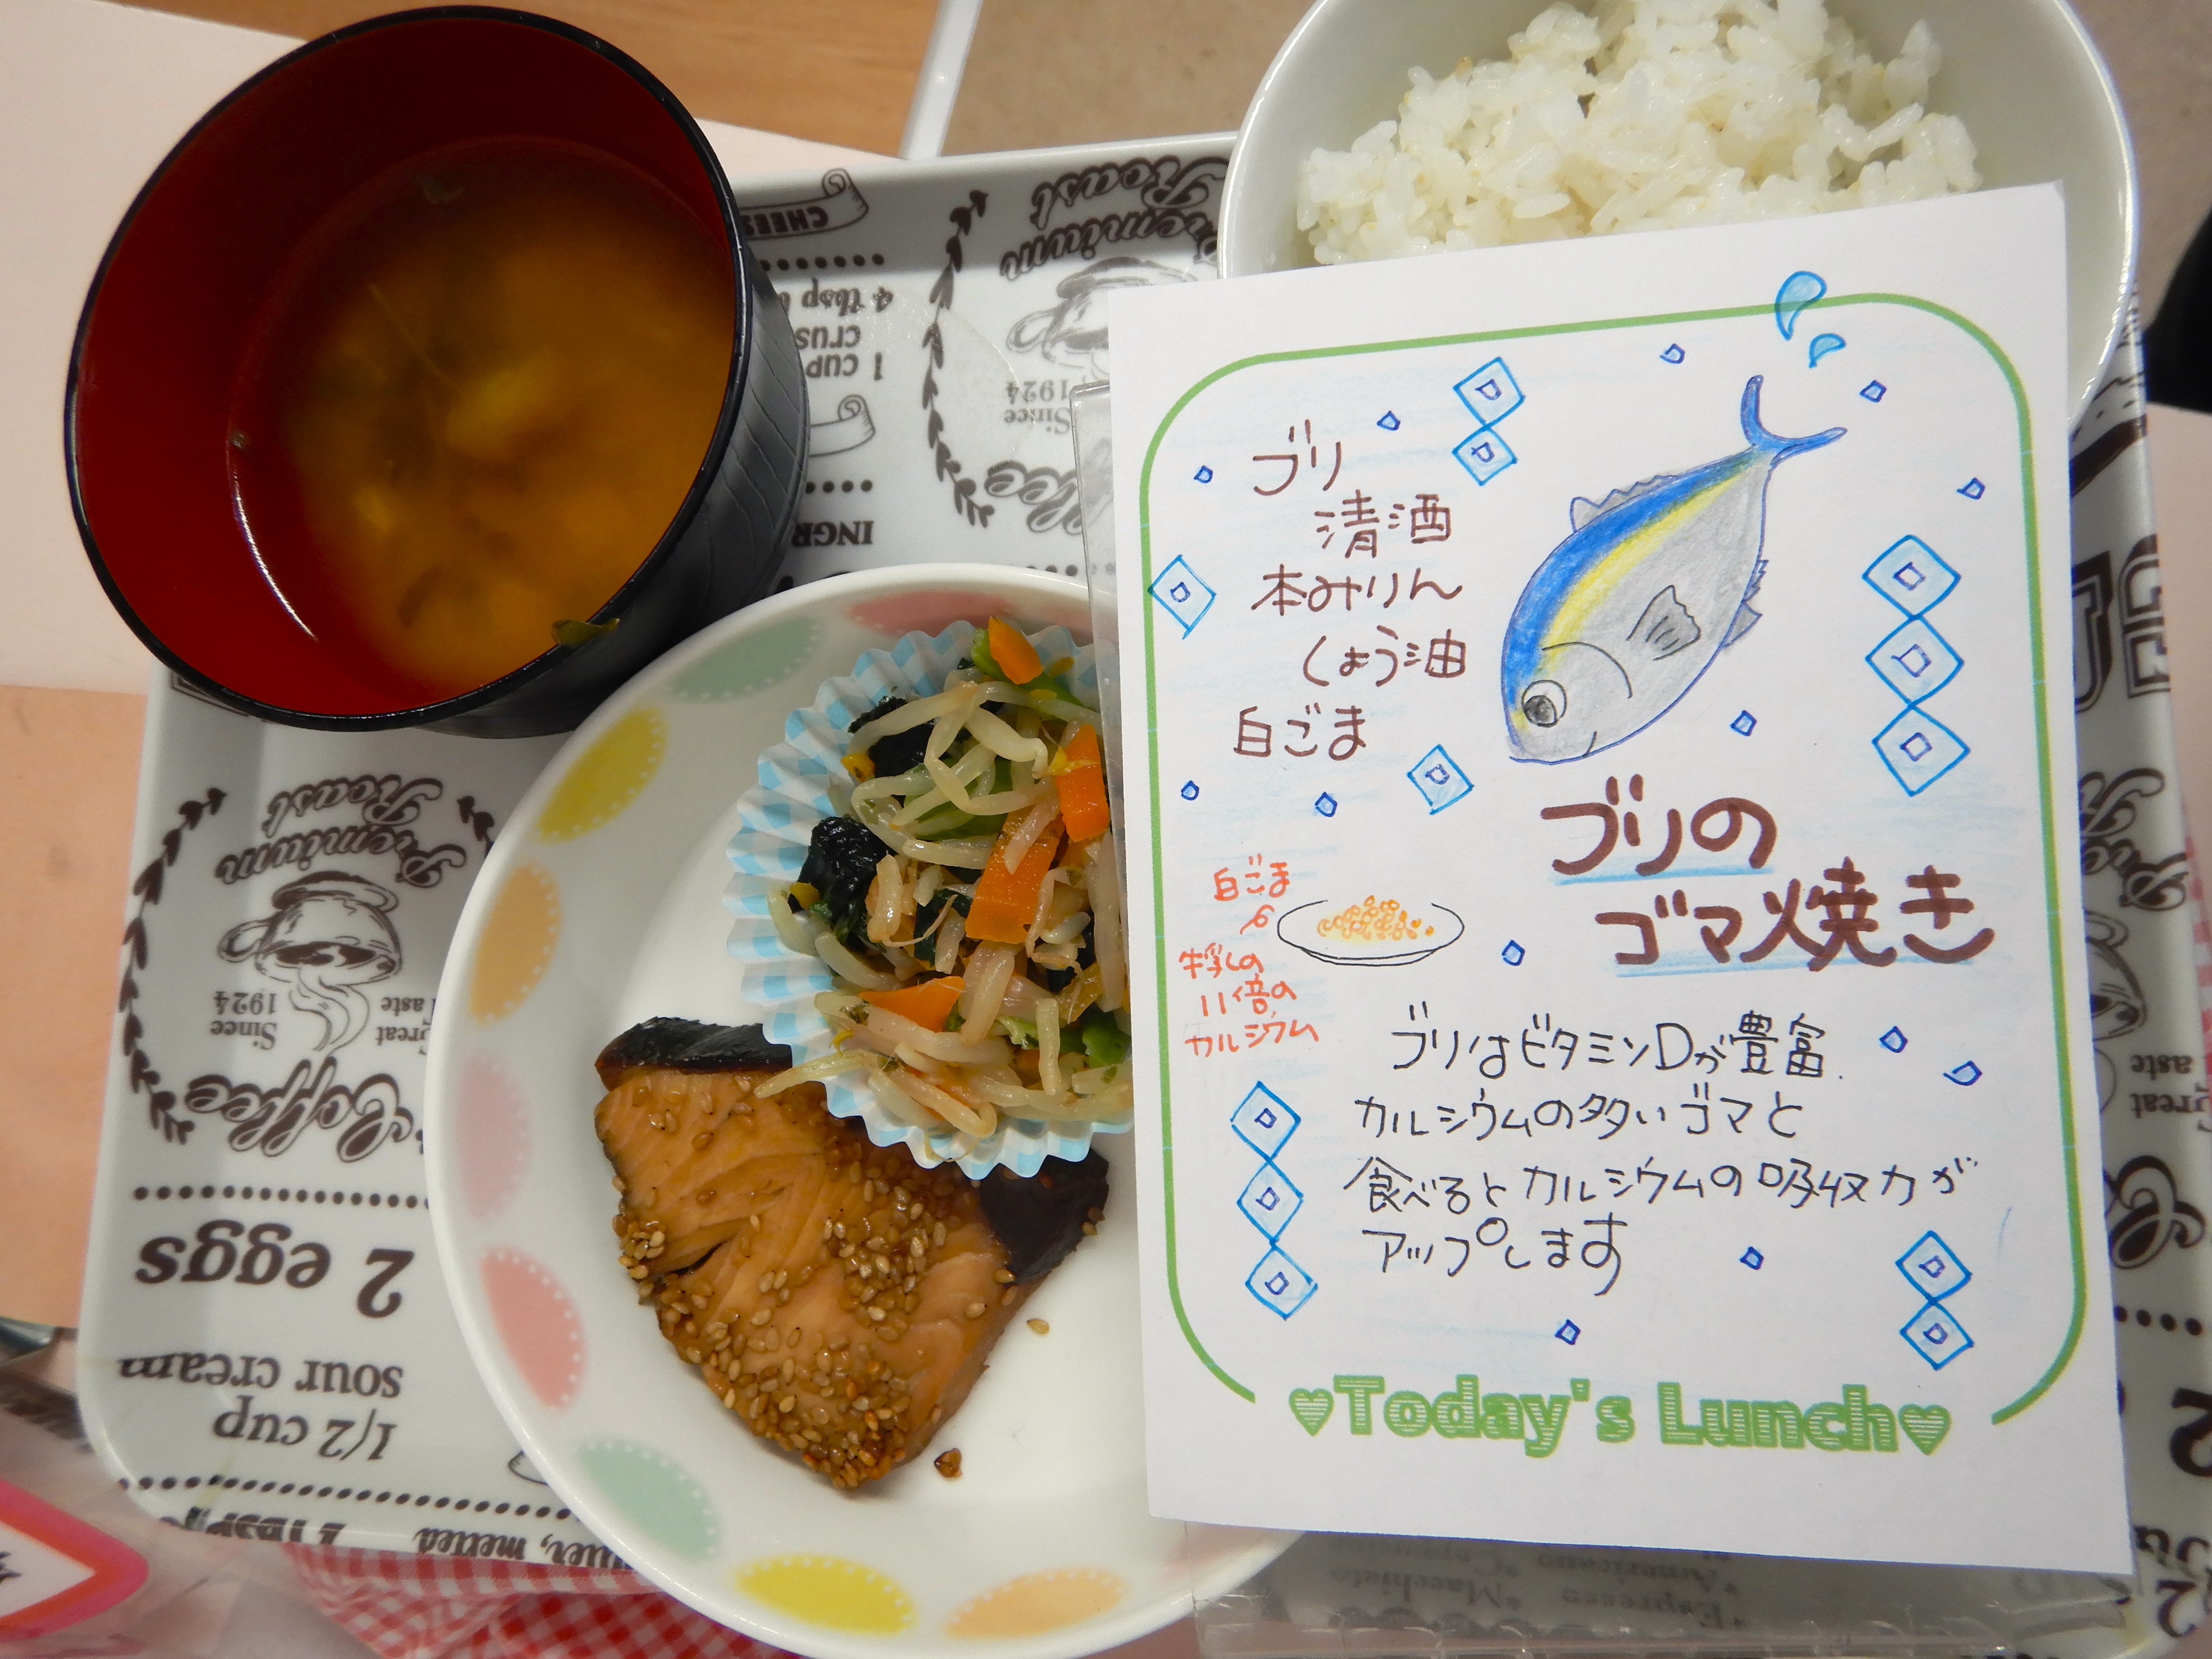 ブリ
清酒
本みりん
しょう油
白ごま
ブリの
ゴマ焼き
白ごま
牛乳の
11倍の
カルシウム
ブリはビタミンDが豊富
カルシウムの多いゴマと
食べるとカルシウムの吸収力が
アップします
♥Today's Lunch♥
Premium
Roast
Since
1924
Coffee
4 tbsp
1 cup
Premium
Roast
Since
1924
Great
Taste
Coffee
2 eggs
1/2 cup
sour cream
melted